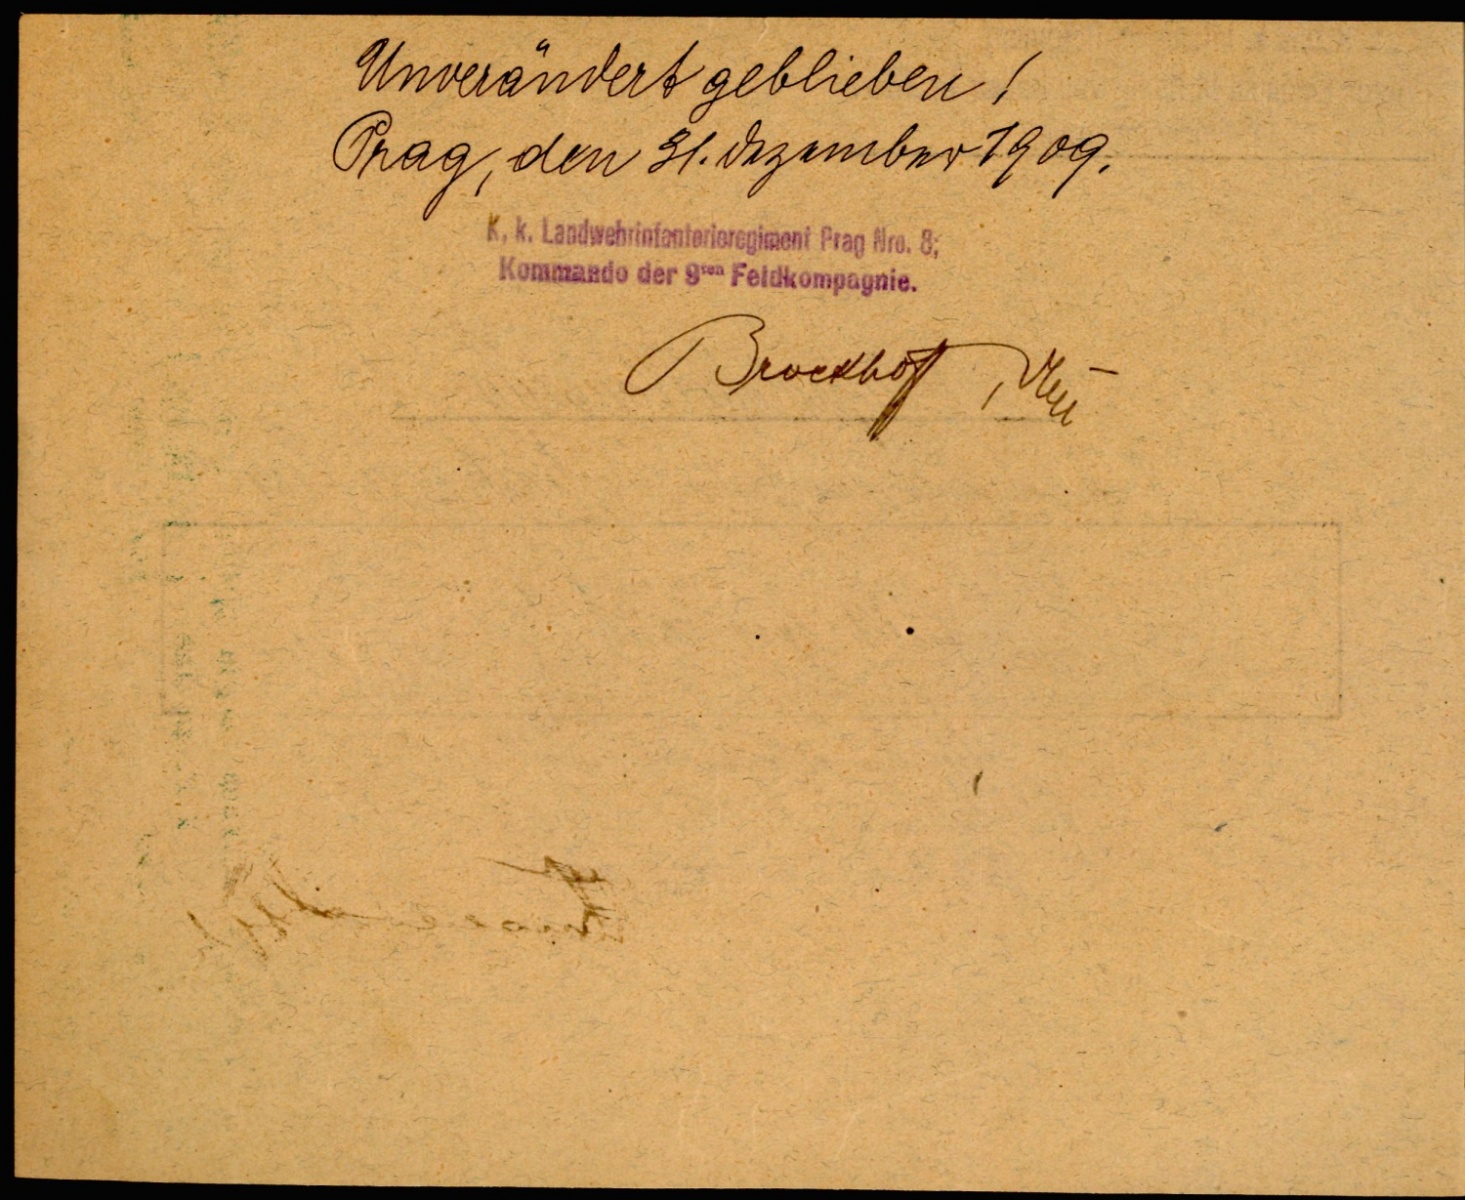 Unverändert geblieben!
Prag, den 31. Dezember 1909.
K. k. Landwehrinfanterieregiment Prag Nro. 8;
Kommando der 9ten Feldkompagnie.
Brockhoff,